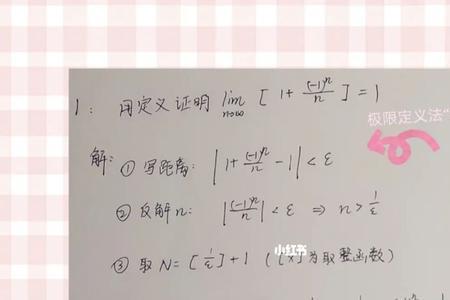 1: 用定义证明 lim n→∞ [1+ (-1)^n/n ] = 1
极限定义法"
解: ① 写距离: |1+ (-1)^n/n -1| < ε
② 反解n: |(-1)^n/n| < ε ⇒ n > 1/ε
小红书
③ 取 N = [1/ε]+1 ([x]为取整函数)